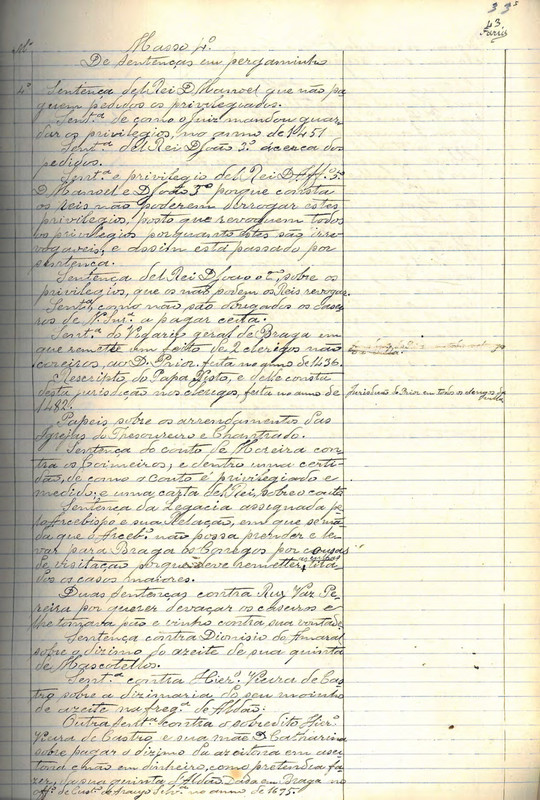 335
43
Nº
Masso 4º
De Sentenças em pergaminho
4º Sentença del Rei D. Manoel que não pa-
guem pedidos os privilegiados.
Sentª de como o Juiz mandou guar-
dar os privilegios, no anno de 1451
Sentª del Rei D. João 3º ácerca dos
pedidos.
Sentª e privilegio del Rei D. Affº 5º
D. Manoel e D. João 3º porque consta
os reis não poderem derrogar estes
privilegios, posto que revoguem todos
os privilegios porquanto estes são irre-
vogaveis, e assim está passado por
sentença.
Sentença del Rei D. João o 1º, sobre os
privilegios, que os não podem os Reis revogar.
Sentª, como não são obrigados os casei-
ros de N. Snrª a pagar ceita.
Sentª do Vigario geral de Braga em
que remette um feito de 2 clerigos não
coreiros, ao D. Prior, feita no anno de 1436.
Rescripto do Papa Xisto, e nelle consta
desta jurisdição nos clerigos, feita no anno de
1482.
Jurisdicão do Prior em todos os clerigos da
Papeis sobre os arrendamentos das
Igrejas do Thesoureiro e Chantrado.
Sentença do couto de Moreira con-
tra os Coimeiros, e dentro uma certi-
dão, de como o couto é privilegiado e
medido; e uma carta del Rei sobre o couto
Sentença da Legacia assegnada pe-
lo Arcebispo e sua Relação, em que se man-
da que o Arcebº não possa prender e le-
var para Braga os Conegos por causas
de visitação porque deve remetter, tira-
dos os casos maiores.
Duas Sentenças contra Ruy Vaz Pe-
reira por querer devaçar os caseiros e
lhe tomava pão e vinho contra sua vontade.
Sentença contra Dionisio do Amaral
sobre o dizimo do azeite de sua quinta
de Mascotellos.
Sentª contra Hierº Vieira de Cas-
tro sobre a dizimaria do seu moinho
de azeite na fregª de Aldão.
Outra Sentª contra o sobredito Hierº
Vieira de Castro e sua mãe D. Catharina
sobre pagar o dizimo da azeitona em azei-
tona e não em dinheiro, como pretendia fa-
zer, da sua quinta d'Aldão. Dada em Braga no
offº de Custº de Araujo Silvª no anno de 1675.